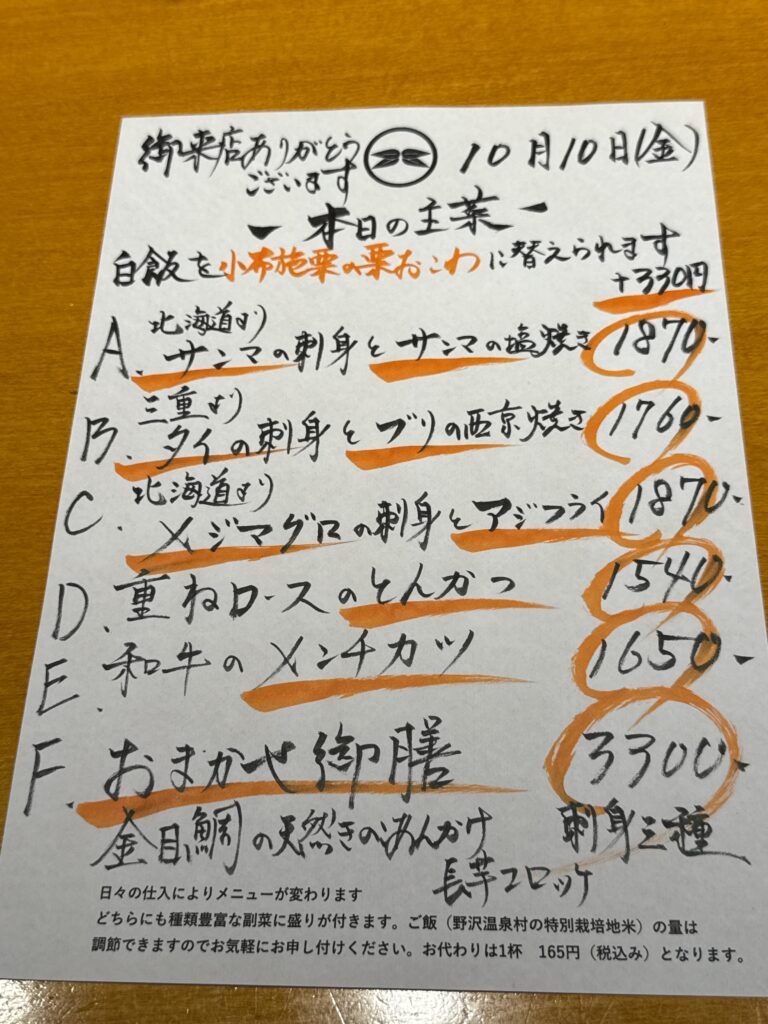 御来店ありがとう
ございます
10月10日(金)
－本日の主菜－
白飯を小布施栗の栗おこわに替えられます
+330円
北海道より
A. サンマの刺身とサンマの塩焼き 1870-
三重より
B. タイの刺身とブリの西京焼き 1760-
北海道より
C. メジマグロの刺身とアジフライ 1870-
D. 重ねロースのとんかつ 1540-
E. 和牛のメンチカツ 1650-
F. おまかせ御膳 3300-
金目鯛の天然きのこあんかけ 刺身三種
長芋コロッケ
日々の仕入によりメニューが変わります
どちらにも種類豊富な副菜に盛りが付きます。ご飯（野沢温泉村の特別栽培地米）の量は
調節できますのでお気軽にお申し付けください。お代わりは1杯 165円（税込み）となります。